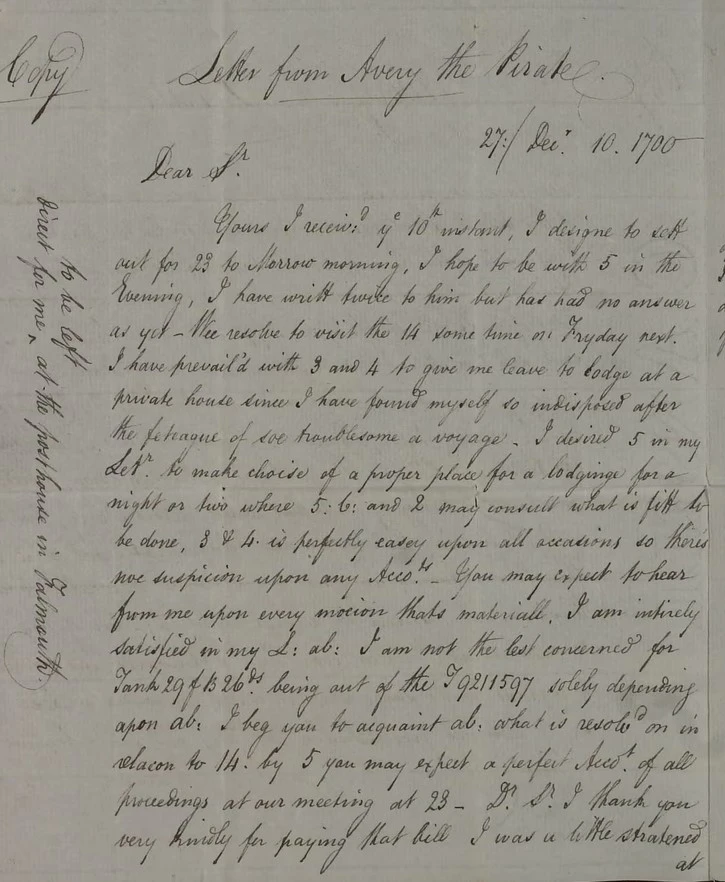 Copy
Letter from Avery the Pirate.
27:/ Decr. 10. 1700
Dear Sr.
Yours I receiv:d ye 10th instant, I designe to sett
out for 23 to Morrow morning, I hope to be with 5 in the
Evening, I have writt twice to him but has had no answer
as yet - Wee resolve to visit the 14 some time on Fryday next.
I have prevail'd with 3 and 4 to give me leave to lodge at a
private house since I have found myself so indisposed after
the feteague of soe troublesome a voyage - I desired 5 in my
Lettr. to make choise of a proper place for a lodginge for a
night or two where 5: 6: and 2 may consult what is fitt to
be done, 3 & 4. is perfectly easey upon all occasions so there's
noe suspicion upon any Acco.ts - You may expect to hear
from me upon every mocion thats materiall, I am intirely
satisfied in my L: ab: I am not the lest concerned for
Tank 29 f B 26.ds being out of the T9211597 solely depending
upon ab: I beg you to acquaint ab: what is resolv'd on in
relacon to 14. by 5 you may expect a perfect Acco.t of all
proceedings at our meeting at 23 - Dr. Sr. I thank you
very kindly for paying that bill I was a little stratened
at
to be left
direct for me ^ at the posthouse in Falmouth.